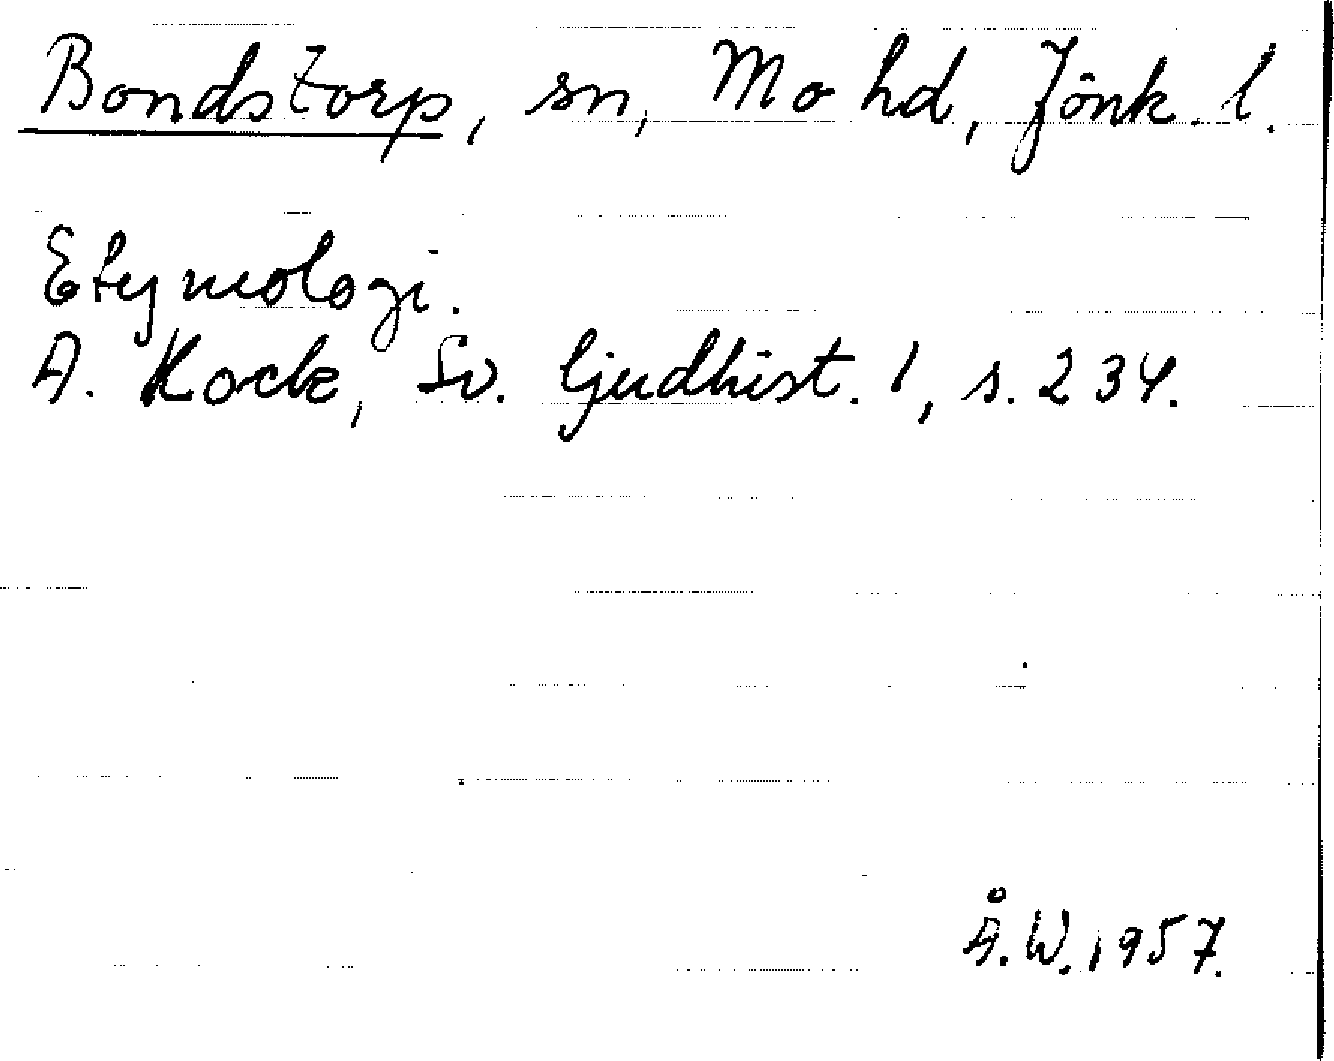 Bondstorp, sn, Mo hd, Jönk. l.
Etymologi.
A. Kock, Sv. ljudhist. 1, s. 234.
Å.W. 1957.